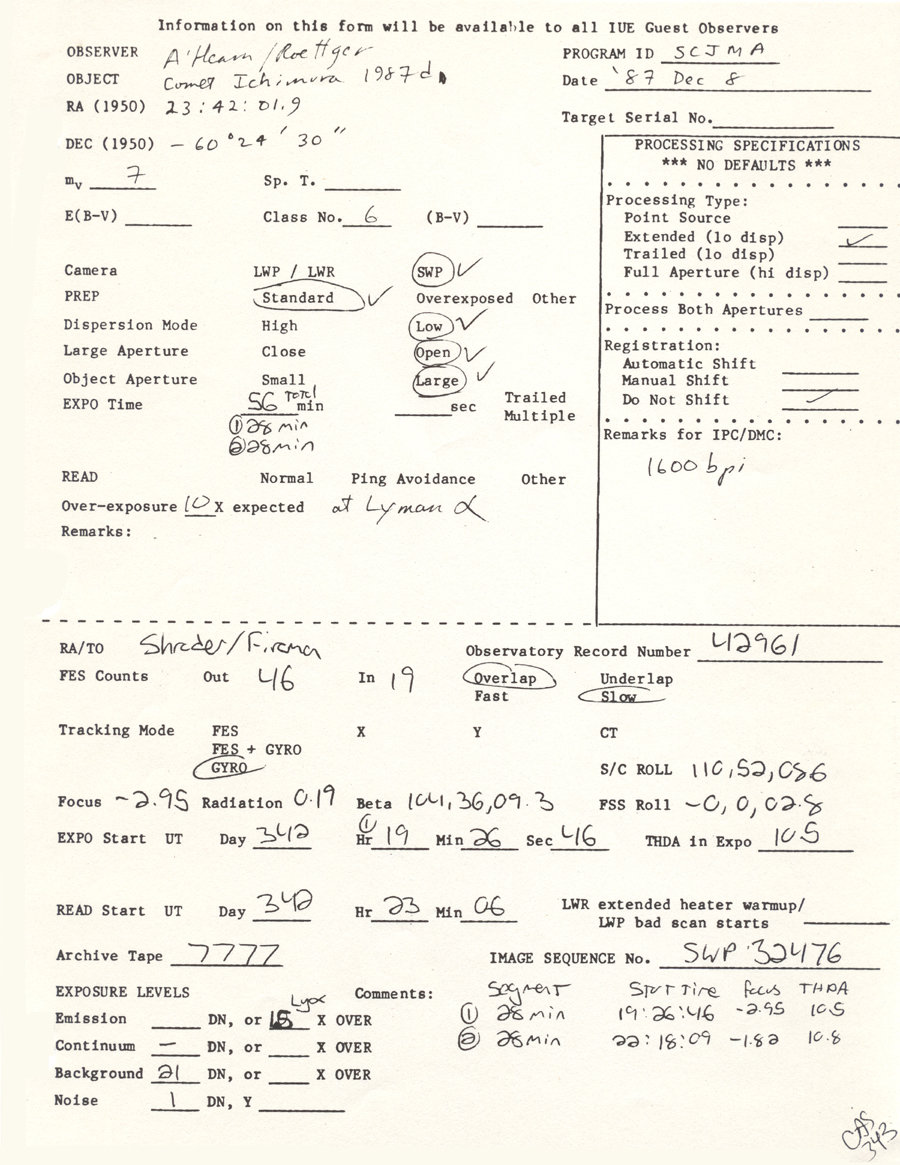 Information on this form will be available to all IUE Guest Observers
OBSERVER A'Hearn/Roettger
PROGRAM ID SCJMA
OBJECT Comet Ichimura 1987d
Date '87 Dec 8
RA (1950) 23:42:01.9
Target Serial No.
DEC (1950) - 60°24' 30"
mv 7 Sp. T.
E(B-V) Class No. 6 (B-V)
Camera LWP / LWR SWP ✓
PREP Standard ✓ Overexposed Other
Dispersion Mode High Low ✓
Large Aperture Close Open ✓
Object Aperture Small Large ✓
EXPO Time 56 Total min sec Trailed
Multiple
① 28 min
② 28 min
READ Normal Ping Avoidance Other
Over-exposure 10 X expected at Lyman α
Remarks:
PROCESSING SPECIFICATIONS
*** NO DEFAULTS ***
Processing Type:
Point Source
Extended (lo disp) ✓
Trailed (lo disp)
Full Aperture (hi disp)
Process Both Apertures
Registration:
Automatic Shift
Manual Shift
Do Not Shift ✓
Remarks for IPC/DMC:
1600 bpi
RA/TO Shrader/
Observatory Record Number 42961
FES Counts Out 46 In 19 Overlap Underlap
Fast Slow
Tracking Mode FES X Y CT
FES + GYRO
GYRO
S/C ROLL 110,52,086
Focus -2.95 Radiation 0.19 Beta 104,36,09.3 FSS Roll -0,0,02.8
EXPO Start UT Day 342 ① Hr 19 Min 26 Sec 46 THDA in Expo 10.5
READ Start UT Day 342 Hr 23 Min 06 LWR extended heater warmup/
LWP bad scan starts
Archive Tape 7777 IMAGE SEQUENCE No. SWP 32476
EXPOSURE LEVELS Comments: Segment Start Time focus THDA
Emission DN, or Lyα X OVER ① 28 min 19:26:46 -2.95 10.5
Continuum — DN, or X OVER ② 28 min 22:18:09 -1.82 10.8
Background 21 DN, or X OVER
Noise 1 DN, Y
CAS
343